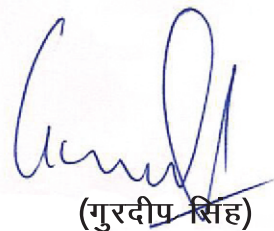 (गुरदीप सिंह)